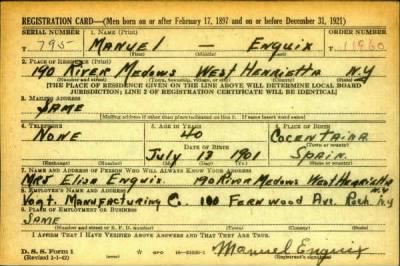 REGISTRATION CARD—(Men born on or after February 17, 1897 and on or before December 31, 1921)
SERIAL NUMBER 1. NAME (Print) ORDER NUMBER
T 795 MANUEL — ENQUIX 11960
(First) (Middle) (Last)
2. PLACE OF RESIDENCE (Print)
190 RIVER MEDOWS WEST HENRIETTA N.Y
(Number and street) (Town, township, village, or city) (County) (State)
[THE PLACE OF RESIDENCE GIVEN ON THE LINE ABOVE WILL DETERMINE LOCAL BOARD
JURISDICTION; LINE 2 OF REGISTRATION CERTIFICATE WILL BE IDENTICAL]
3. MAILING ADDRESS
SAME
[Mailing address if other than place indicated on line 2. If same insert word same]
4. TELEPHONE 5. AGE IN YEARS 6. PLACE OF BIRTH
NONE 40 COCENTAINA
DATE OF BIRTH (Town or county)
July 13 1901 SPAIN.
(Exchange) (Number) (Mo.) (Day) (Yr.) (State or country)
7. NAME AND ADDRESS OF PERSON WHO WILL ALWAYS KNOW YOUR ADDRESS
MRS Elisa Enquix. 190 River Medows West Henrietta
N.Y
8. EMPLOYER'S NAME AND ADDRESS
Vogt. Manufacturing Co. 100 Fernwood Ave. Roch. N.Y
9. PLACE OF EMPLOYMENT OR BUSINESS
SAME
(Number and street or R. F. D. number) (Town) (County) (State)
I AFFIRM THAT I HAVE VERIFIED ABOVE ANSWERS AND THAT THEY ARE TRUE.
D. S. S. Form 1
(Revised 1-1-42) (over) GPO Manuel Enquix
(Registrant's signature)